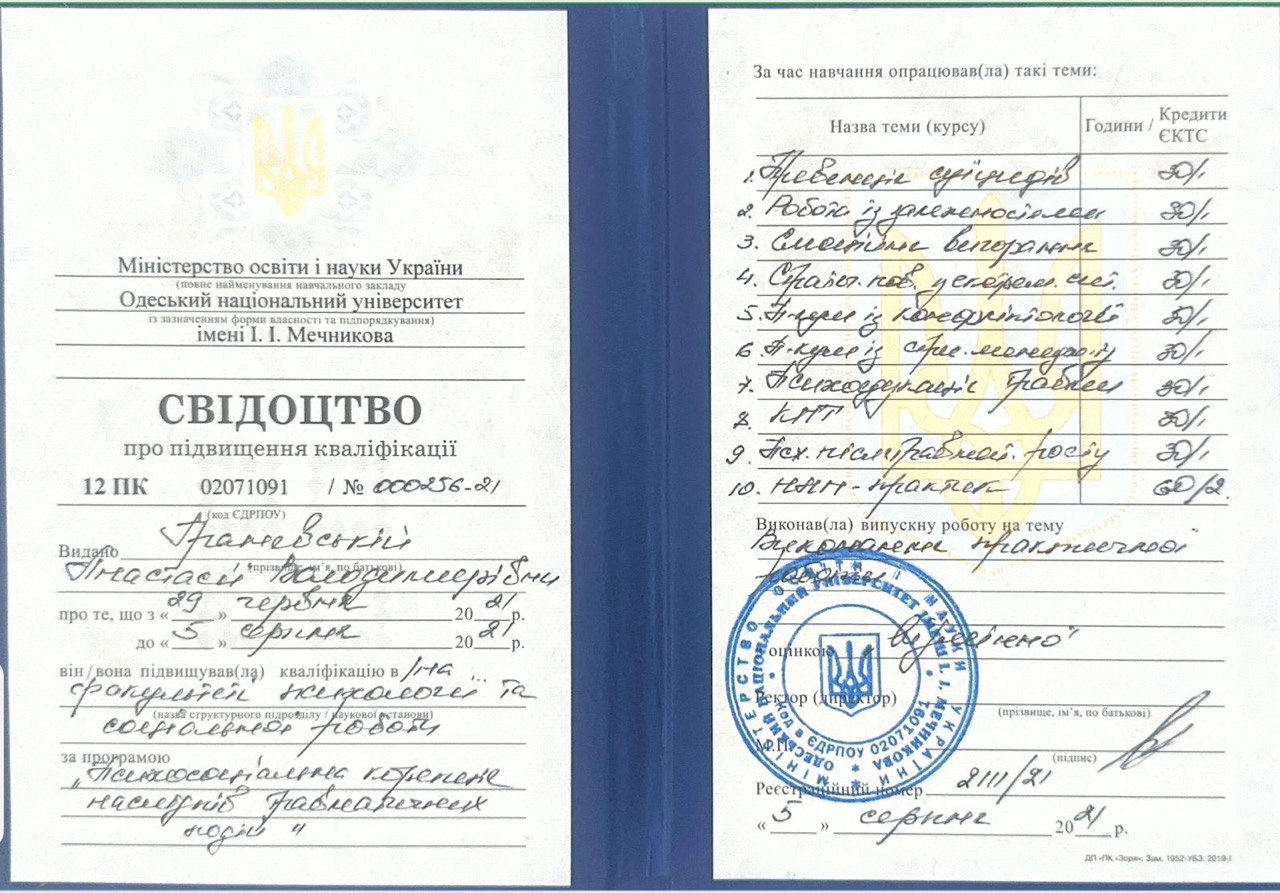 Міністерство освіти і науки України
(повне найменування навчального закладу
Одеський національний університет
із зазначенням форми власності та підпорядкування)
імені І. І. Мечникова
СВІДОЦТВО
про підвищення кваліфікації
12 ПК 02071091 / № 000256-21
(код ЄДРПОУ)
Видано
(прізвище, ім’я, по батькові)
Анастасії Володимирівни
про те, що з « 29 » червня 20 21 р.
до « 5 » серпня 20 21 р.
він/вона підвищував(ла) кваліфікацію в /на ...
факультеті психології та
(назва структурного підрозділу / наукової установи)
соціальної роботи
за програмою
„Психосоціальна корекція
наслідків травматичних
подій “
За час навчання опрацював(ла) такі теми:
Назва теми (курсу) Години / Кредити ЄКТС
1. Превенція суїцидів 30/1
2. Робота із залежностями 30/1
3. Емоційне вигорання 30/1
4. 30/1
5. 30/1
6. 30/1
7. Психоедукація травми 30/1
8. КПТ 30/1
9. 30/1
10. 60/2
Виконав(ла) випускну роботу на тему
Виконання практичної
роботи
оцінкою відмінно
Ректор (директор)
(прізвище, ім’я, по батькові)
М.П.
(підпис)
Реєстраційний номер 2111/21
« 5 » серпня 20 21 р.
МІНІСТЕРСТВО ОСВІТИ І НАУКИ УКРАЇНИ
ОДЕСЬКИЙ НАЦІОНАЛЬНИЙ УНІВЕРСИТЕТ ІМЕНІ І. І. МЕЧНИКОВА
Код в ЄДРПОУ 02071091
ДП «ПК «Зоря». Зам. 1952-УБЗ. 2019-